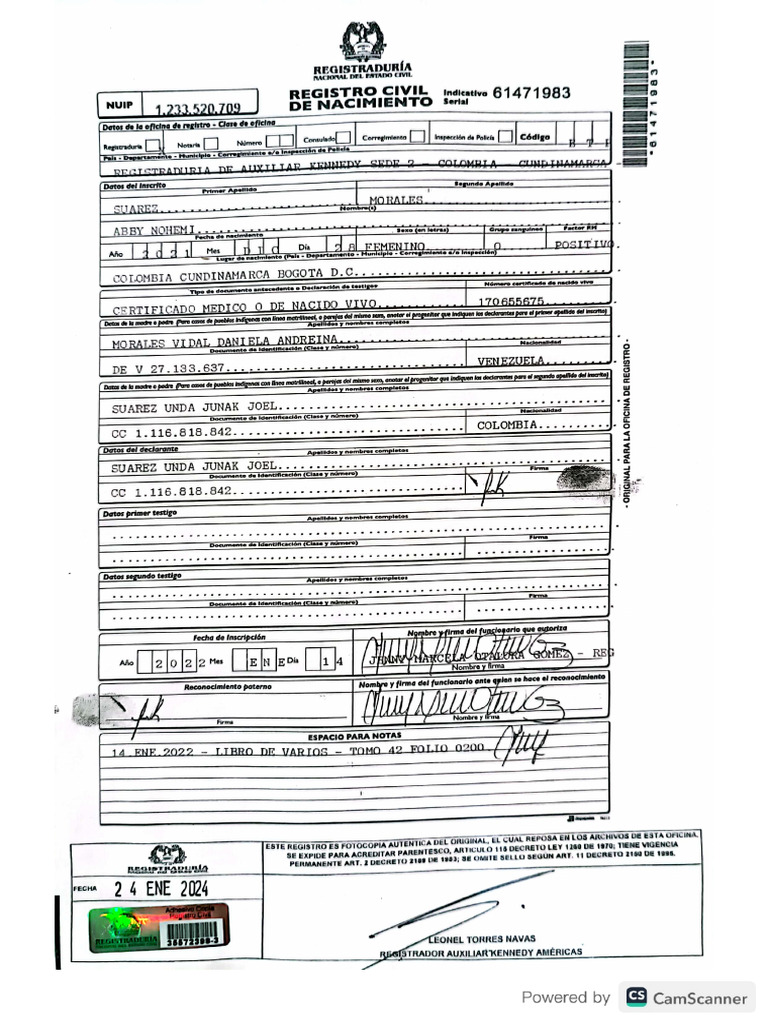 REGISTRADURÍA
NACIONAL DEL ESTADO CIVIL
NUIP 1.233.520.709
REGISTRO CIVIL
DE NACIMIENTO
Indicativo Serial 61471983
*61471983*
Datos de la oficina de registro - Clase de oficina
Registraduría Notaría Número Consulado Corregimiento Inspección de Policía Código
País - Departamento - Municipio - Corregimiento e/o Inspección de Policía
REGISTRADURIA DE AUXILIAR KENNEDY SEDE 2 - COLOMBIA - CUNDINAMARCA -
Datos del inscrito
Primer Apellido Segundo Apellido
SUAREZ MORALES
Nombre(s)
ABBY NOHEMI
Fecha de nacimiento Sexo (en letras) Grupo sanguíneo Factor RH
Año 2021 Mes DIC Día 28 FEMENINO O POSITIVO
Lugar de nacimiento (País - Departamento - Municipio - Corregimiento e/o Inspección)
COLOMBIA CUNDINAMARCA BOGOTA D.C.
Tipo de documento antecedente o Declaración de testigos Número certificado de nacido vivo
CERTIFICADO MEDICO O DE NACIDO VIVO 170655675
Datos de la madre o padre (Para casos de pueblos indígenas con línea matrilineal, o parejas del mismo sexo, anotar el progenitor que indiquen los declarantes para el primer apellido del inscrito)
Apellidos y nombres completos
MORALES VIDAL DANIELA ANDREINA
Documento de Identificación (Clase y número) Nacionalidad
DE V 27.133.637 VENEZUELA
Datos de la madre o padre (Para casos de pueblos indígenas con línea matrilineal, o parejas del mismo sexo, anotar el progenitor que indiquen los declarantes para el segundo apellido del inscrito)
Apellidos y nombres completos
SUAREZ UNDA JUNAK JOEL
Documento de Identificación (Clase y número) Nacionalidad
CC 1.116.818.842 COLOMBIA
Datos del declarante
Apellidos y nombres completos
SUAREZ UNDA JUNAK JOEL
Documento de Identificación (Clase y número) Firma
CC 1.116.818.842
Datos primer testigo
Apellidos y nombres completos
Documento de Identificación (Clase y número) Firma
Datos segundo testigo
Apellidos y nombres completos
Documento de Identificación (Clase y número) Firma
- ORIGINAL PARA LA OFICINA DE REGISTRO -
Fecha de Inscripción Nombre y firma del funcionario que autoriza
Año 2022 Mes ENE Día 14 JENNY MARCELA OTALORA GOMEZ - REG
Nombre y firma
Reconocimiento paterno Nombre y firma del funcionario ante quien se hace el reconocimiento
Firma Nombre y firma
ESPACIO PARA NOTAS
14.ENE.2022 - LIBRO DE VARIOS - TOMO 42 FOLIO 0200
ESTE REGISTRO ES FOTOCOPIA AUTENTICA DEL ORIGINAL, EL CUAL REPOSA EN LOS ARCHIVOS DE ESTA OFICINA.
SE EXPIDE PARA ACREDITAR PARENTESCO, ARTICULO 115 DECRETO LEY 1260 DE 1970; TIENE VIGENCIA
PERMANENTE ART. 2 DECRETO 2189 DE 1983; SE OMITE SELLO SEGÚN ART. 11 DECRETO 2150 DE 1995.
REGISTRADURÍA
NACIONAL DEL ESTADO CIVIL
FECHA 24 ENE 2024
Adhesivo Oficial
Registro Civil
REGISTRADURÍA
NACIONAL DEL ESTADO CIVIL
35572398-3
LEONEL TORRES NAVAS
REGISTRADOR AUXILIAR KENNEDY AMÉRICAS
Powered by CS CamScanner